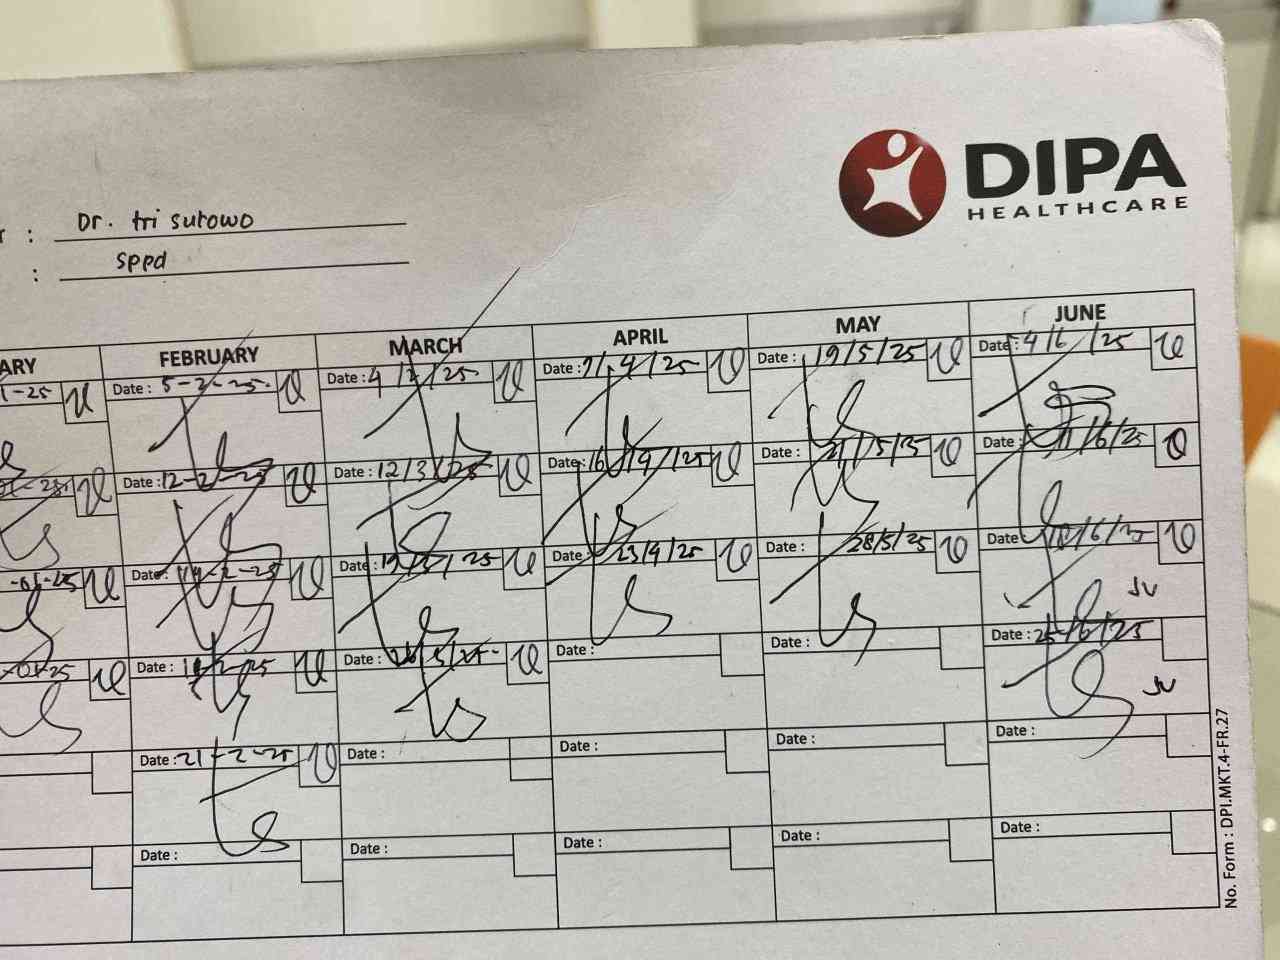 DIPA
HEALTHCARE
r : Dr. tri sutowo
: sppd
ARY FEBRUARY MARCH APRIL MAY JUNE
1-25 Date : 5-2-25. Date : 4 /25 Date : 7/4/25 Date : 19/5/25 Date : 4/6/25
Date : 12-2-25 Date : 12/3/25 Date : 16/4/25 Date : 21/5/25 Date : 11/6/25
-01-25 Date : 14-2-25 Date : 25 Date : 23/4/25 Date : 28/5/25 Date : /6/25
JU
-01-25 Date : -2-25 Date : 26/3/25- Date : Date : Date : 25/6/25
JU
Date : 21-2-25 Date : Date : Date : Date :
Date : Date : Date : Date : Date :
No. Form : DPI.MKT.4-FR.27